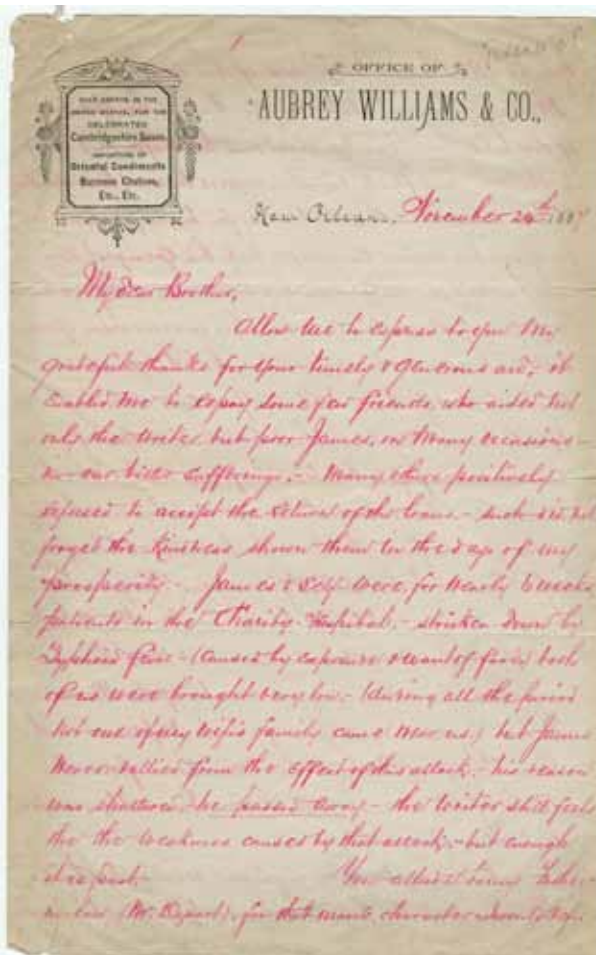 OFFICE OF
AUBREY WILLIAMS & CO.,
SOLE AGENTS IN THE
UNITED STATES, FOR THE
CELEBRATED
Cambridgeshire Sauce.
IMPORTERS OF
Oriental Condiments
Burmese Chutnes,
Etc., Etc.
New Orleans, November 24th, 188
My dear Brother,
Allow me to express to you my
grateful thanks for your timely & generous aid; it
enabled me to repay some few friends, who aided not
only the writer, but poor James, on many occasions
in our bitter sufferings. - Many others positively
refused to accept the return of the loans. - such did not
forget the kindness shown them in the days of my
prosperity - James & self were, for nearly
patients in the Charity Hospital, - stricken down by
Typhoid fever - (caused by exposure & want of food) both
of us were brought very low. - (during all the period
not one of my wife's family came near us.) but James
never rallied from the effect of this attack, - his reason
was shattered, he passed away - the writer still feels
the the weakness caused by that attack, - but enough
it is past. - You
in law (Mr. ), for that